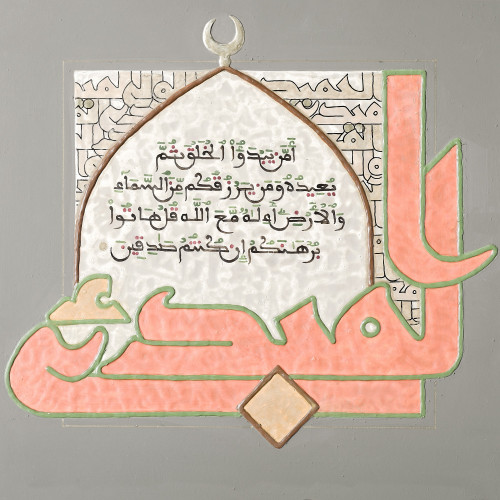 أَمَّنْ يَبْدَؤُا۟ الْخَلْقَ ثُمَّ
يُعِيدُهُ وَمَنْ يَرْزُقُكُم مِّنَ السَّمَاءِ
وَالْأَرْضِ أَ۟لَهٌ مَّعَ اللَّهِ قُلْ هَاتُوا
بُرْهَٰنَكُمْ إِن كُنتُمْ صَٰدِقِينَ
المبدئ